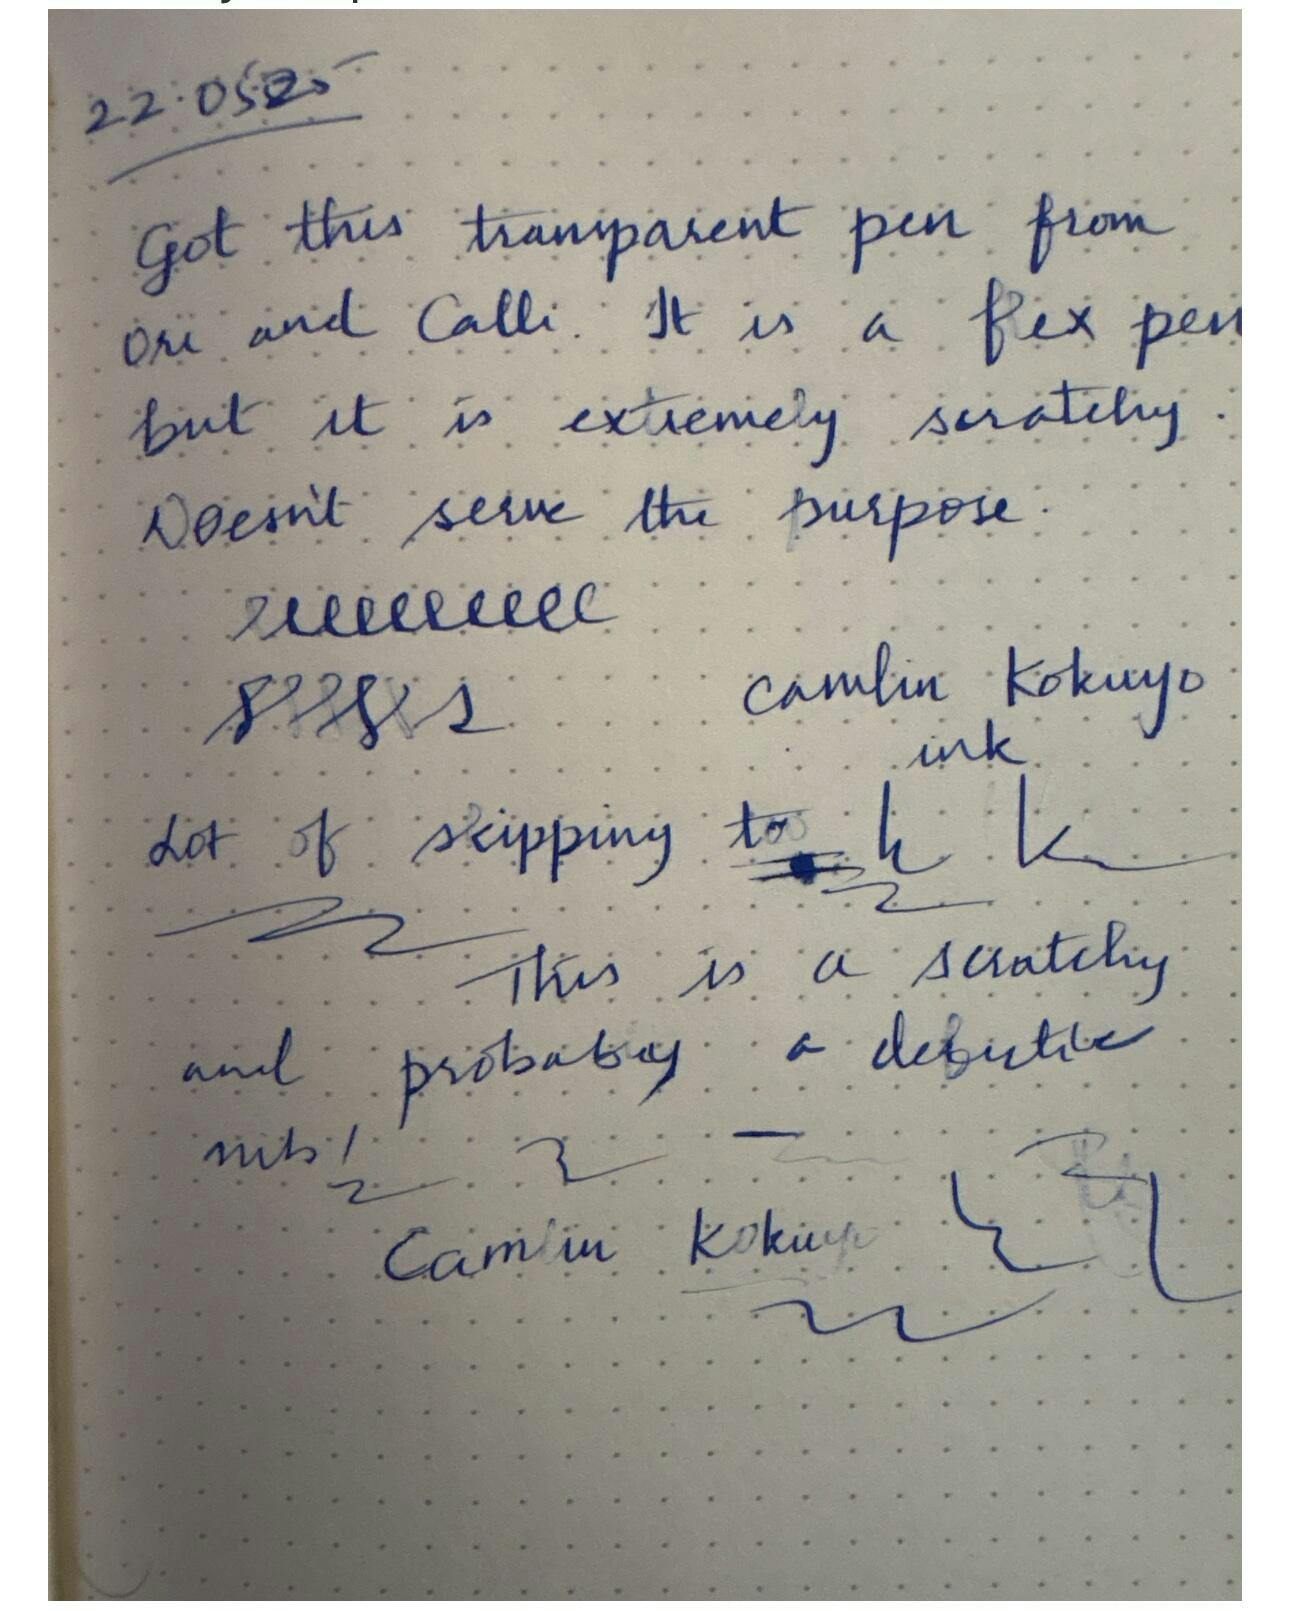 22.05.25
Got this transparent pen from
Ori and Calli. It is a flex pen
but it is extremely scratchy.
Doesn't serve the purpose.
eeeeeeeee
Camlin Kokuyo
ink
Lot of skipping too k k
This is a scratchy
and probabay a defective
nib!
Camlin Kokuyo